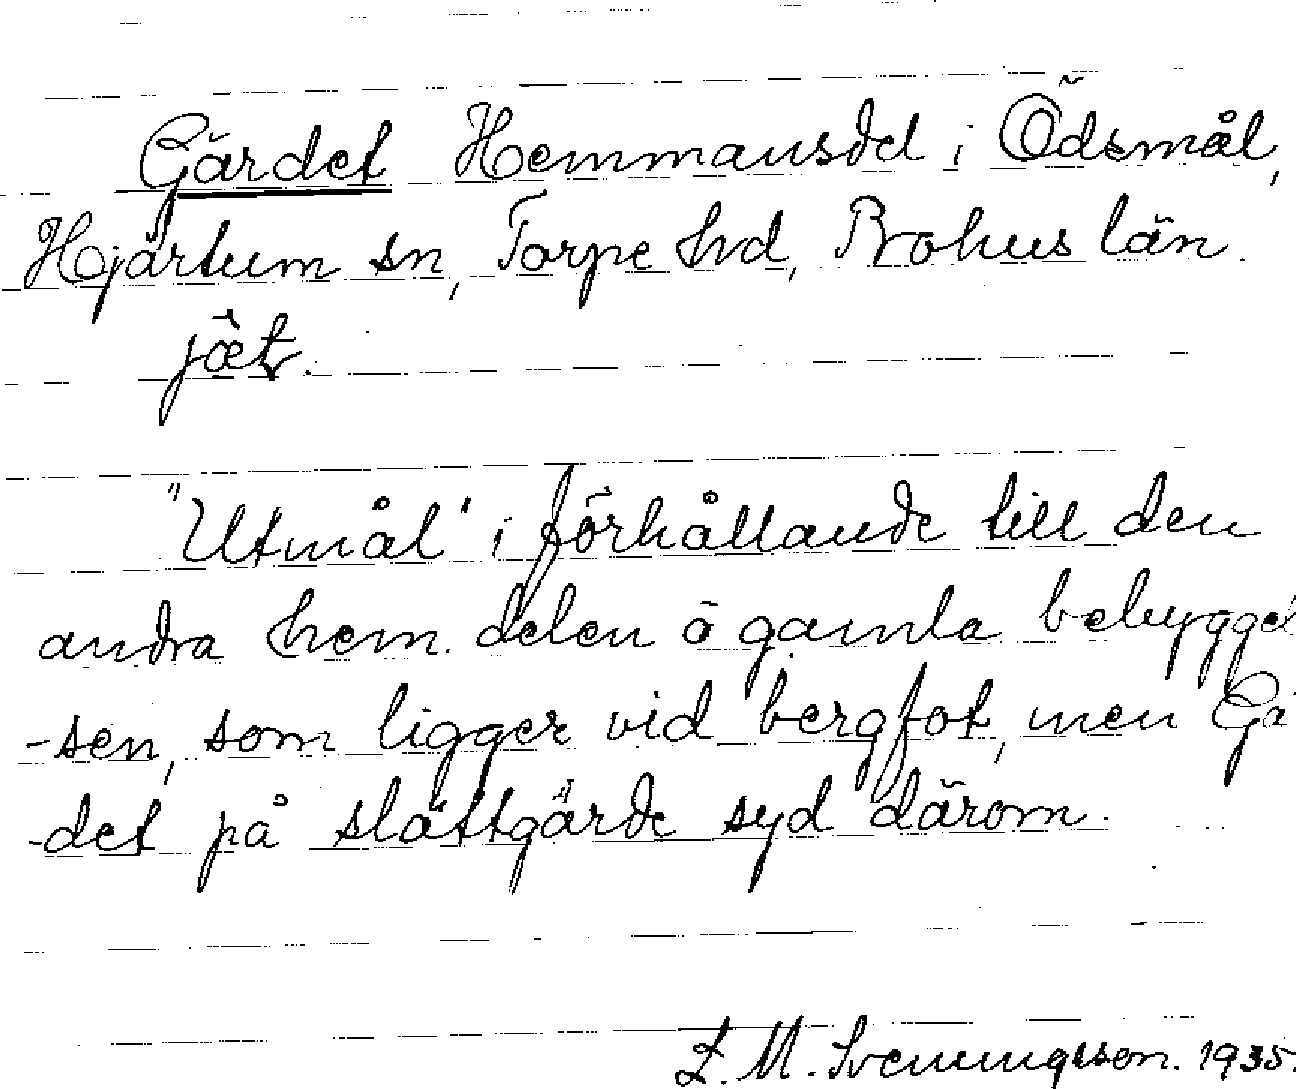 Gärdet Hemmansdel i Ödsmål,
Hjärtum sn, Torpe hd, Bohus län.
jæt.
"Utmål" i förhållande till den
andra hem. delen ö gamla bebyggel
-sen, som ligger vid bergfot, men Gä
-det på slättgärde syd därom.
L. M. Svenungsson. 1935.